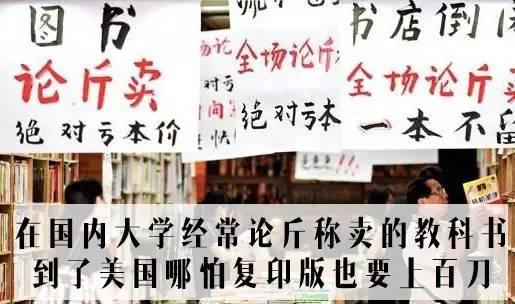 图书
论斤卖
绝对亏本价
全场论斤
绝对亏本
书店倒闭
全场论斤卖
一本不留
在国内大学经常论斤称卖的教科书
到了美国哪怕复印版也要上百刀